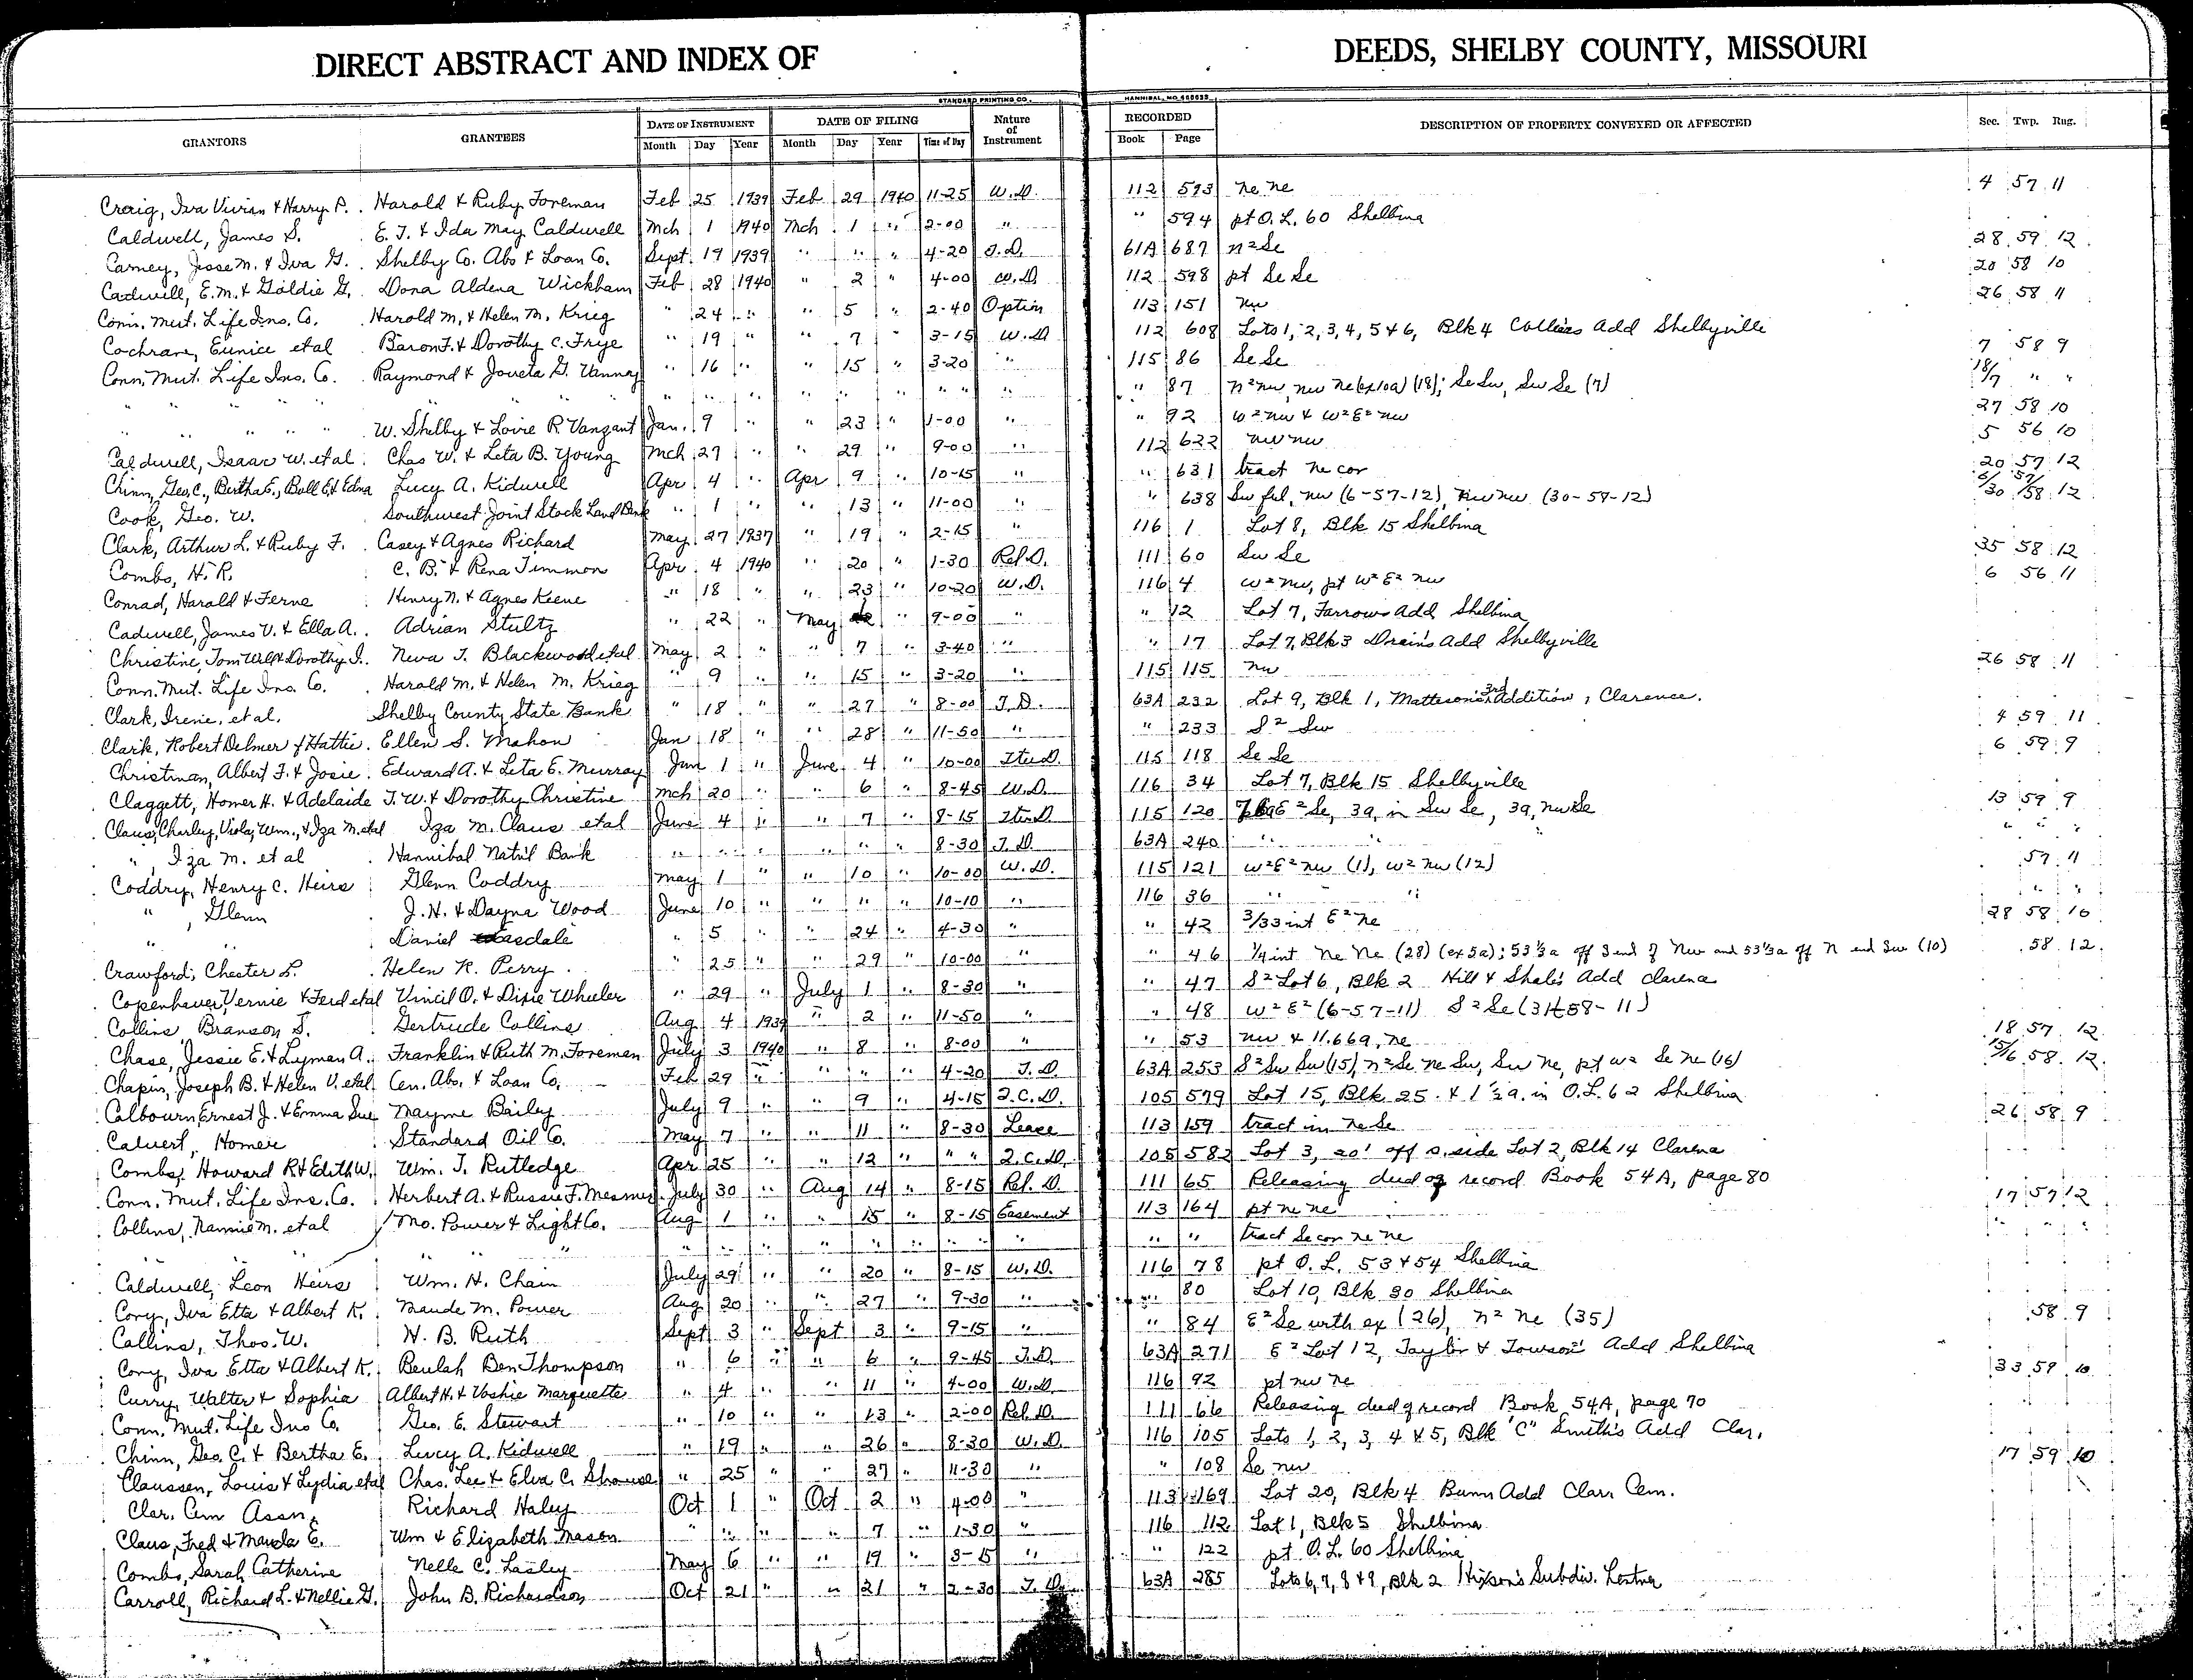 DIRECT ABSTRACT AND INDEX OF DEEDS, SHELBY COUNTY, MISSOURI
STANDARD PRINTING CO. HANNIBAL, MO.
GRANTORS GRANTEES DATE OF INSTRUMENT DATE OF FILING Nature of Instrument RECORDED DESCRIPTION OF PROPERTY CONVEYED OR AFFECTED Sec. Twp. Rng.
Month Day Year Month Day Year Time of Day Book Page
Craig, Iva Vivian & Harry P. Harold & Ruby Foreman Feb 25 1939 Feb 29 1940 11-25 W.D. 112 593 ne ne 4 57 11
Caldwell, James S. E. T. & Ida May Caldwell Mch 1 1940 Mch 1 " 2-00 " " 594 pt O.L. 60 Shelbina
Carney, Jesse M. & Iva G. Shelby Co. Abs & Loan Co. Sept 19 1939 " " " 4-20 T.D. 61A 687 n² Se 28 59 12
Cadwell, E.M. & Goldie G. Dona Aldena Wickham Feb 28 1940 " 2 " 4-00 W.D 112 598 pt Se Se 20 58 10
Conn. Mut. Life Ins. Co. Harold M. & Helen M. Krieg " 24 " " 5 " 2-40 Option 113 151 nw 26 58 11
Cochrane, Eunice etal Baron F. & Dorothy C. Frye " 19 " " 7 " 3-15 W.D 112 608 Lots 1, 2, 3, 4, 5 & 6, Blk 4 Colliers Add Shelbyville
Conn. Mut. Life Ins. Co. Raymond & Joveta G. Vannoy " 16 " " 15 " 3-20 " 115 86 Se Se 7 58 9
" " " " " " " " " " " " " " " " " 87 n² nw, nw ne (ex 10a) (18); Se Sw, Sw Se (7) 18/7 " "
" " " " " W. Shelby & Lovie R. Vanzant Jan. 9 " " 23 " 1-00 " " 92 w² nw & w² E² nw 27 58 10
Caldwell, Isaac W. et al Chas W. & Leta B. Young Mch 27 " " 29 " 9-00 " 112 622 nw nw 5 56 10
Chinn, Geo. C., Bertha E., Ball E & Edna Lucy A. Kidwell Apr 4 " Apr 9 " 10-15 " " 631 tract ne cor 20 57 12
Cook, Geo. W. Southwest Joint Stock Land Bank " 1 " " 13 " 11-00 " " 638 Sw frl, nw (6-57-12), nw nw (30-58-12) 6/30 57/58 12
Clark, Arthur L. & Ruby F. Casey & Agnes Richard May 27 1937 " 19 " 2-15 " 116 1 Lot 8, Blk 15 Shelbina
Combs, H. R. C. B. & Rena Timmon Apr 4 1940 " 20 " 1-30 Rel. D. 111 60 Sw Se 35 58 12
Conrad, Harold & Ferne Henry N. & Agnes Keene " 18 " " 23 " 10-20 W.D. 116 4 w² nw, pt w² E² nw 6 56 11
Cadwell, James V. & Ella A. Adrian Stultz " 22 " May " 9-00 " " 12 Lot 7, Farrows Add Shelbina
Christine, Tom Will & Dorothy I. Neva T. Blackwood et al May 2 " " 7 " 3-40 " " 17 Lot 7, Blk 3 Drains Add Shelbyville
Conn. Mut. Life Ins. Co. Harold M. & Helen M. Krieg " 9 " " 15 " 3-20 " 115 115 nw 26 58 11
Clark, Irene, et al. Shelby County State Bank " 18 " " 27 " 8-00 T.D. 63A 232 Lot 9, Blk 1, Matteson's 3rd Addition, Clarence.
Clark, Robert Delmer & Hattie Ellen S. Mahon Jan 18 " " 28 " 11-50 " " 233 S² Sw 4 59 11
Christman, Albert F. & Josie Edward A. & Leta E. Murray June 1 " June 4 " 10-00 115 118 Se Se 6 59 9
Claggett, Homer H. & Adelaide T. W. & Dorothy Christine Mch 20 " " 6 " 8-45 W.D. 116 34 Lot 7, Blk 15 Shelbyville
Claus, Charley, Viola, Wm., & Iza M. etal Iza M. Claus etal June 4 " " 7 " 8-15 115 120 E² Se, 3a, in Sw Se, 3a, nw Se 13 59 9
" , Iza M. et al Hannibal Nat'l Bank " " " " " " 8-30 T.D. 63A 240 " " " " "
Coddry, Henry C. Heirs Glenn Coddry May 1 " " 10 " 10-00 W.D. 115 121 w² E² nw (1), w² nw (12) 57 11
" , Glenn J. H. & Dayna Wood June 10 " " " " 10-10 " 116 36 " " " "
" " Daniel Easdale " 5 " " 24 " 4-30 " " 42 3/33 int E² ne 28 58 10
Crawford, Chester L. Helen K. Perry " 25 " " 29 " 10-00 " " 46 ¼ int ne ne (28) (ex 5a); 53⅓a off S end of nw and 53⅓a off n end Sw (10) 58 12
Copenhaver, Vernie & Ferd etal Vincil O. & Dixie Wheeler " 29 " July 1 " 8-30 " " 47 S² Lot 6, Blk 2 Hill & Shale's Add Clarence
Collins, Branson S. Gertrude Collins Aug 4 1939 " 2 " 11-50 " " 48 w² E² (6-57-11) S² Se (31-58-11)
Chase, Jessie E. & Lyman A. Franklin & Ruth M. Foreman July 3 1940 " 8 " 8-00 " " 53 nw & 11.66a, ne 18 57 12
Chapin, Joseph B. & Helen V. etal Cen. Abs. & Loan Co. Feb 29 " " " " 4-20 T.D. 63A 253 S² Sw Sw (15), n² Se ne Sw, Sw ne, pt w² Se ne (16) 15/16 58 12
Calbourn Ernest J. & Emma Sue Mayme Bailey July 9 " " 9 " 4-15 Q.C.D. 105 579 Lot 15, Blk 25 & 1½a. in O.L. 62 Shelbina
Calvert, Homer Standard Oil Co. May 7 " " 11 " 8-30 Lease 113 159 tract in ne Se 26 58 9
Combs, Howard R & Edith W. Wm. T. Rutledge Apr 25 " " 12 " " " Q.C.D. 105 582 Lot 3, 20' off S. side Lot 2, Blk 14 Clarence
Conn. Mut. Life Ins. Co. Herbert A. & Russie F. Mesmer July 30 " Aug 14 " 8-15 Rel. D. 111 65 Releasing deed of record Book 54A, page 80
Collins, Nannie M. et al Mo. Power & Light Co. Aug 1 " " 15 " 8-15 Easement 113 164 pt ne ne 17 57 12
" " " " " " " " " " " " " " tract Se cor ne ne " " "
Caldwell, Leon Heirs Wm. H. Chain July 29 " " 20 " 8-15 W.D. 116 78 pt O.L. 53 & 54 Shelbina
Cory, Iva Etta & Albert K. Maude M. Power Aug 20 " " 27 " 9-30 " " 80 Lot 10, Blk 30 Shelbina
Collins, Thos. W. H. B. Ruth Sept 3 " Sept 3 " 9-15 " " 84 E² Se with ex (26), n² ne (35) 58 9
Cory, Iva Etta & Albert K. Beulah Ben Thompson " 6 " " 6 " 9-45 T.D. 63A 271 E² Lot 12, Taylor & Towson's Add Shelbina
Curry, Walter & Sophia Albert H. & Voshie Marquette " 4 " " 11 " 4-00 W.D. 116 92 pt nw ne 33 59 10
Conn. Mut. Life Ins Co. Geo. E. Stewart " 10 " " 13 " 2-00 Rel. D. 111 66 Releasing deed of record Book 54A, page 70
Chinn, Geo. C. & Bertha E. Lucy A. Kidwell " 19 " " 26 " 8-30 W.D. 116 105 Lots 1, 2, 3, 4 & 5, Blk "C" Smith's Add Clar.
Claussen, Louis & Lydia etal Chas. Lee & Elva C. Shouse " 25 " " 27 " 11-30 " " 108 Se nw 17 59 10
Clar. Cem Assn. Richard Haley Oct 1 " Oct 2 " 4-00 " 113 169 Lot 20, Blk 4 Bunn Add Clar. Cem.
Claus, Fred & Maude E. Wm & Elizabeth Mason " " " " 7 " 1-30 " 116 112 Lot 1, Blk 5 Shelbina
Combs, Sarah Catherine Nelle C. Lasley May 6 " " 19 " 8-15 " " 122 pt O.L. 60 Shelbina
Carroll, Richard L. & Nellie G. John B. Richardson Oct 21 " " 21 " 2-30 T.D. 63A 285 Lots 6, 7, 8 & 9, Blk 2 Hixson's Subdiv.